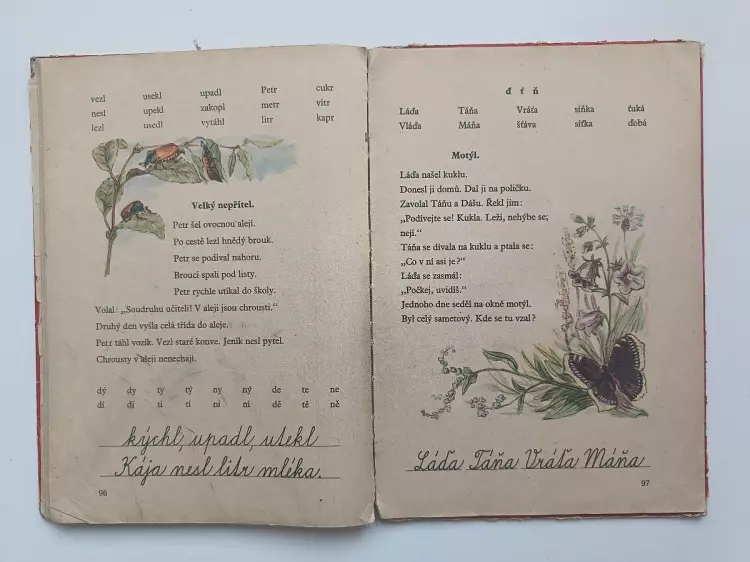 vezl usekl upadl Petr cukr
nesl upekl zakopl metr vítr
lezl usedl vytáhl litr kapr
Velký nepřítel.
Petr šel ovocnou alejí.
Po cestě lezl hnědý brouk.
Petr se podíval nahoru.
Brouci spali pod listy.
Petr rychle utíkal do školy.
Volal: „Soudruhu učiteli! V aleji jsou chrousti.“
Druhý den vyšla celá třída do aleje.
Petr táhl vozík. Vezl staré konve. Jeník nesl pytel.
Chrousty v aleji nenechají.
dý dy tý tý ný ny de te ne
dí di tí ti ní ni dě tě ně
kýchl, upadl, utekl
Kája nesl litr mléka.
96
ď ť ň
Láďa Táňa Vráťa síňka ťuká
Vláďa Máňa šťáva síťka ďobá
Motýl.
Láďa našel kuklu.
Donesl ji domů. Dal ji na poličku.
Zavolal Táňu a Dášu. Řekl jim:
„Podívejte se! Kukla. Leží, nehýbe se,
nejí.“
Táňa se dívala na kuklu a ptala se:
„Co v ní asi je?“
Láďa se zasmál:
„Počkej, uvidíš.“
Jednoho dne seděl na okně motýl.
Byl celý sametový. Kde se tu vzal?
Láďa Táňa Vráťa Máňa
97